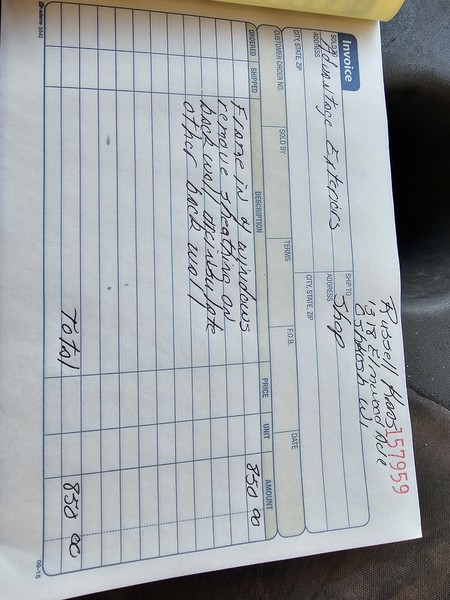 Russell Haas 157959
1318 Elmwood Ave
Oshkosh Wi.
Invoice
SOLD TO Advantage Exteriors
SHIP TO Shop
ADDRESS
ADDRESS
CITY, STATE, ZIP
CITY, STATE, ZIP
CUSTOMER ORDER NO. SOLD BY TERMS F.O.B. DATE
ORDERED SHIPPED DESCRIPTION PRICE UNIT AMOUNT
Frame in 4 windows 850 00
remove sheating on
back wall
other back wall
Total 850 00
09-15